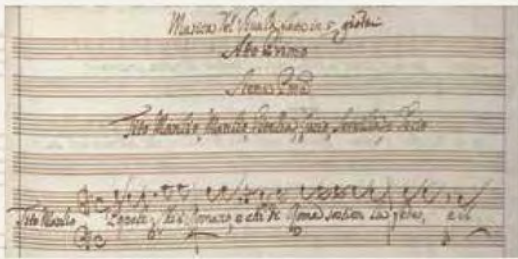 Musica del Vivaldi fatta in 5 giorni
Atto Primo
Scena Prima
Tito Manlio, Manlio, Vitellia, Lucio, Servilia, e Decio
Tito Manlio Popoli, chi è Romano, e chi di Roma